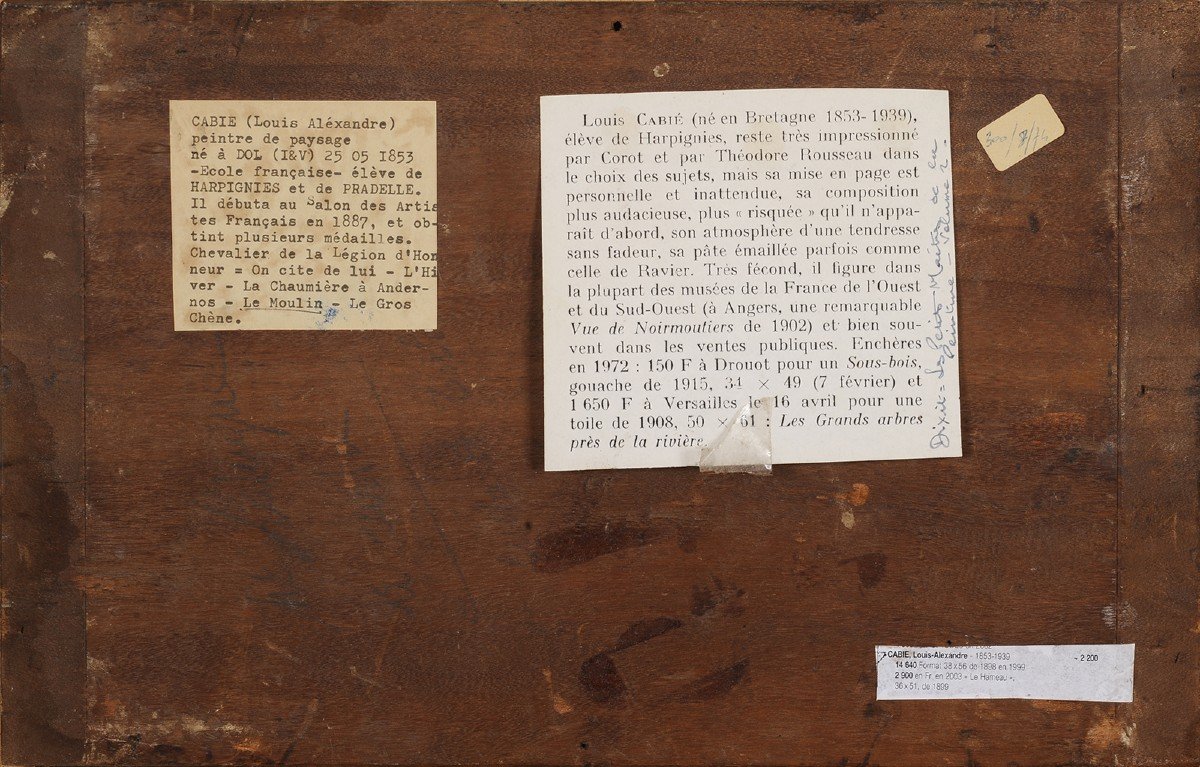 CABIE (Louis Aléxandre)
peintre de paysage
né à DOL (I&V) 25 05 I853
-Ecole française- élève de
HARPIGNIES et de PRADELLE.
Il débuta au Salon des Artis
tes Français en I887, et ob-
tint plusieurs médailles.
Chevalier de la Légion d'Hon
neur = On cite de lui - L'Hi
ver - La Chaumière à Ander-
nos - Le Moulin - Le Gros
Chêne.
Louis CABIÉ (né en Bretagne 1853-1939),
élève de Harpignies, reste très impressionné
par Corot et par Théodore Rousseau dans
le choix des sujets, mais sa mise en page est
personnelle et inattendue, sa composition
plus audacieuse, plus « risquée » qu'il n'appa-
raît d'abord, son atmosphère d'une tendresse
sans fadeur, sa pâte émaillée parfois comme
celle de Ravier. Très fécond, il figure dans
la plupart des musées de la France de l'Ouest
et du Sud-Ouest (à Angers, une remarquable
Vue de Noirmoutiers de 1902) et bien sou-
vent dans les ventes publiques. Enchères
en 1972 : 150 F à Drouot pour un Sous-bois,
gouache de 1915, 34 × 49 (7 février) et
1 650 F à Versailles le 16 avril pour une
toile de 1908, 50 × 61 : Les Grands arbres
près de la rivière.
Dixit = Les Petits Maîtres de la
Peinture - Volume 2.
300/
CABIE, Louis-Alexandre - 1853-1939 ~ 2 200
14 640 Format 38 x 56 de 1898 en 1999
2 900 en Fr. en 2003 « Le Hameau »,
36 x 51, de 1899